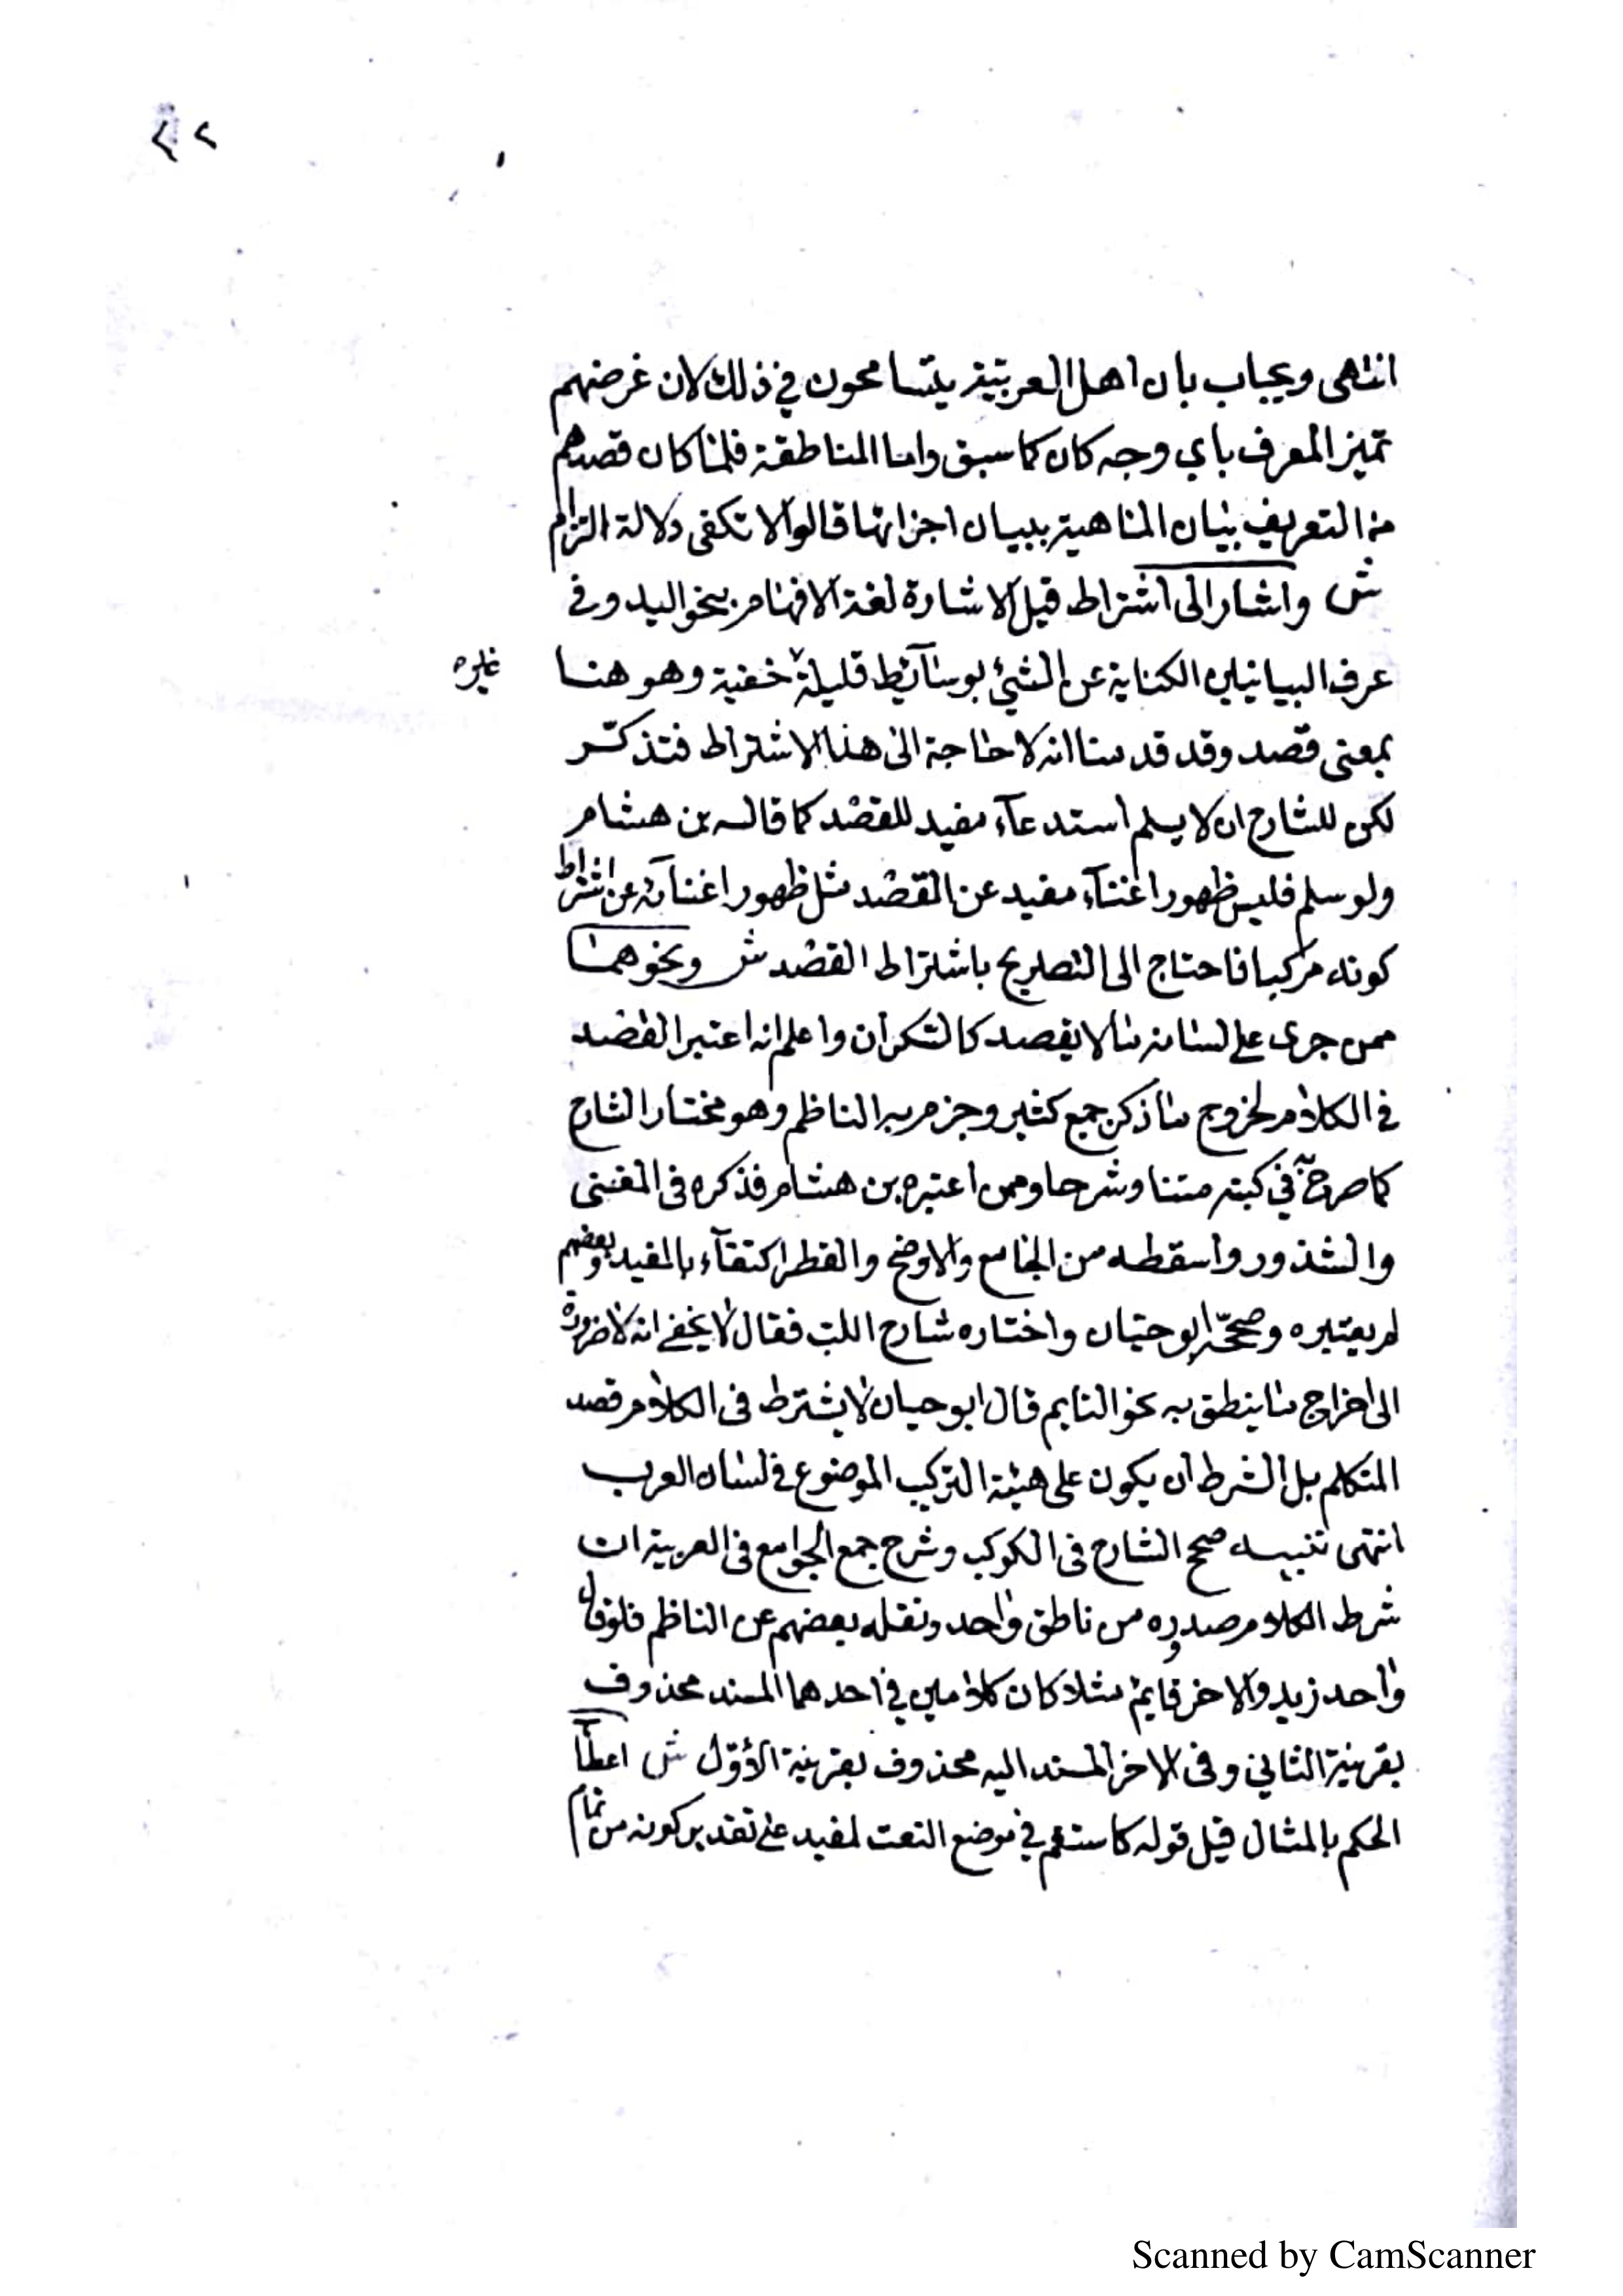 ٢٢
انتهى ويجاب بان اهل العربية يتسامحون في ذلك لان غرضهم
تميز المعرف باي وجه كان كما سبق واما المناطقة فلما كان قصدهم
من التعريف بيان الماهية ببيان اجزائها قالوا لا تكفى دلالة التزام
ش واشار الى اشتراط قيل الاشارة لغة الافهام بنحو اليد وفي
عرف البيانيين الكناية عن الشئ بوسآئط قليلة خفية وهو هنا
غيره
بمعنى قصد وقد قدمنا انه لا حاجة الى هذا الاشتراط فتذكر
لكن للشارح ان لا يسلم استدعآء مفيد للقصد كما قاله بن هشام
ولو سلم فليس ظهور اغنآء مفيد عن القصد مثل ظهور اغنآئه عن اشتراط
كونه مركبا فاحتاج الى التصريح باشتراط القصد ش ونحوهما
ممن جرى على لسانه ما لا يقصد كالسكران واعلم انه اعتبر القصد
في الكلام لخروج ما ذكر جمع كثير وجزم به الناظم وهو مختار الشارح
كما صرح به في كتبه متنا وشرحا وممن اعتبره بن هشام فذكره في المغنى
والشذور واسقطه من الجامع والاوضح والقطر اكتفآء بالمفيد وبعضهم
لم يعتبره وصححه ابو حيان واختاره شارح اللب فقال لا يخفى انه لا ضرورة
الى اخراج ما ينطق به نحو النايم قال ابو حيان لا يشترط في الكلام قصد
المتكلم بل الشرط ان يكون على هيئة التركيب الموضوع في لسان العرب
انتهى تنبيه صحح الشارح في الكوكب وشرح جمع الجوامع في العربية ان
شرط الكلام صدوره من ناطق واحد ونقله بعضهم عن الناظم فلو قال
واحد زيد والاخر قايم مثلا كان كلامين في احدهما المسند محذوف
بقرينة الثاني وفي الاخر المسند اليه محذوف بقرينة الأوّل ش اعطآ
الحكم بالمثال قيل قوله كاستقم في موضع النعت لمفيد على تقدير كونه من تمام
Scanned by CamScanner